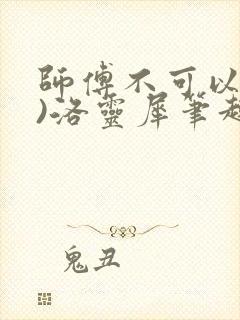 師傅不可以
)洛靈犀筆趣
鬼丑